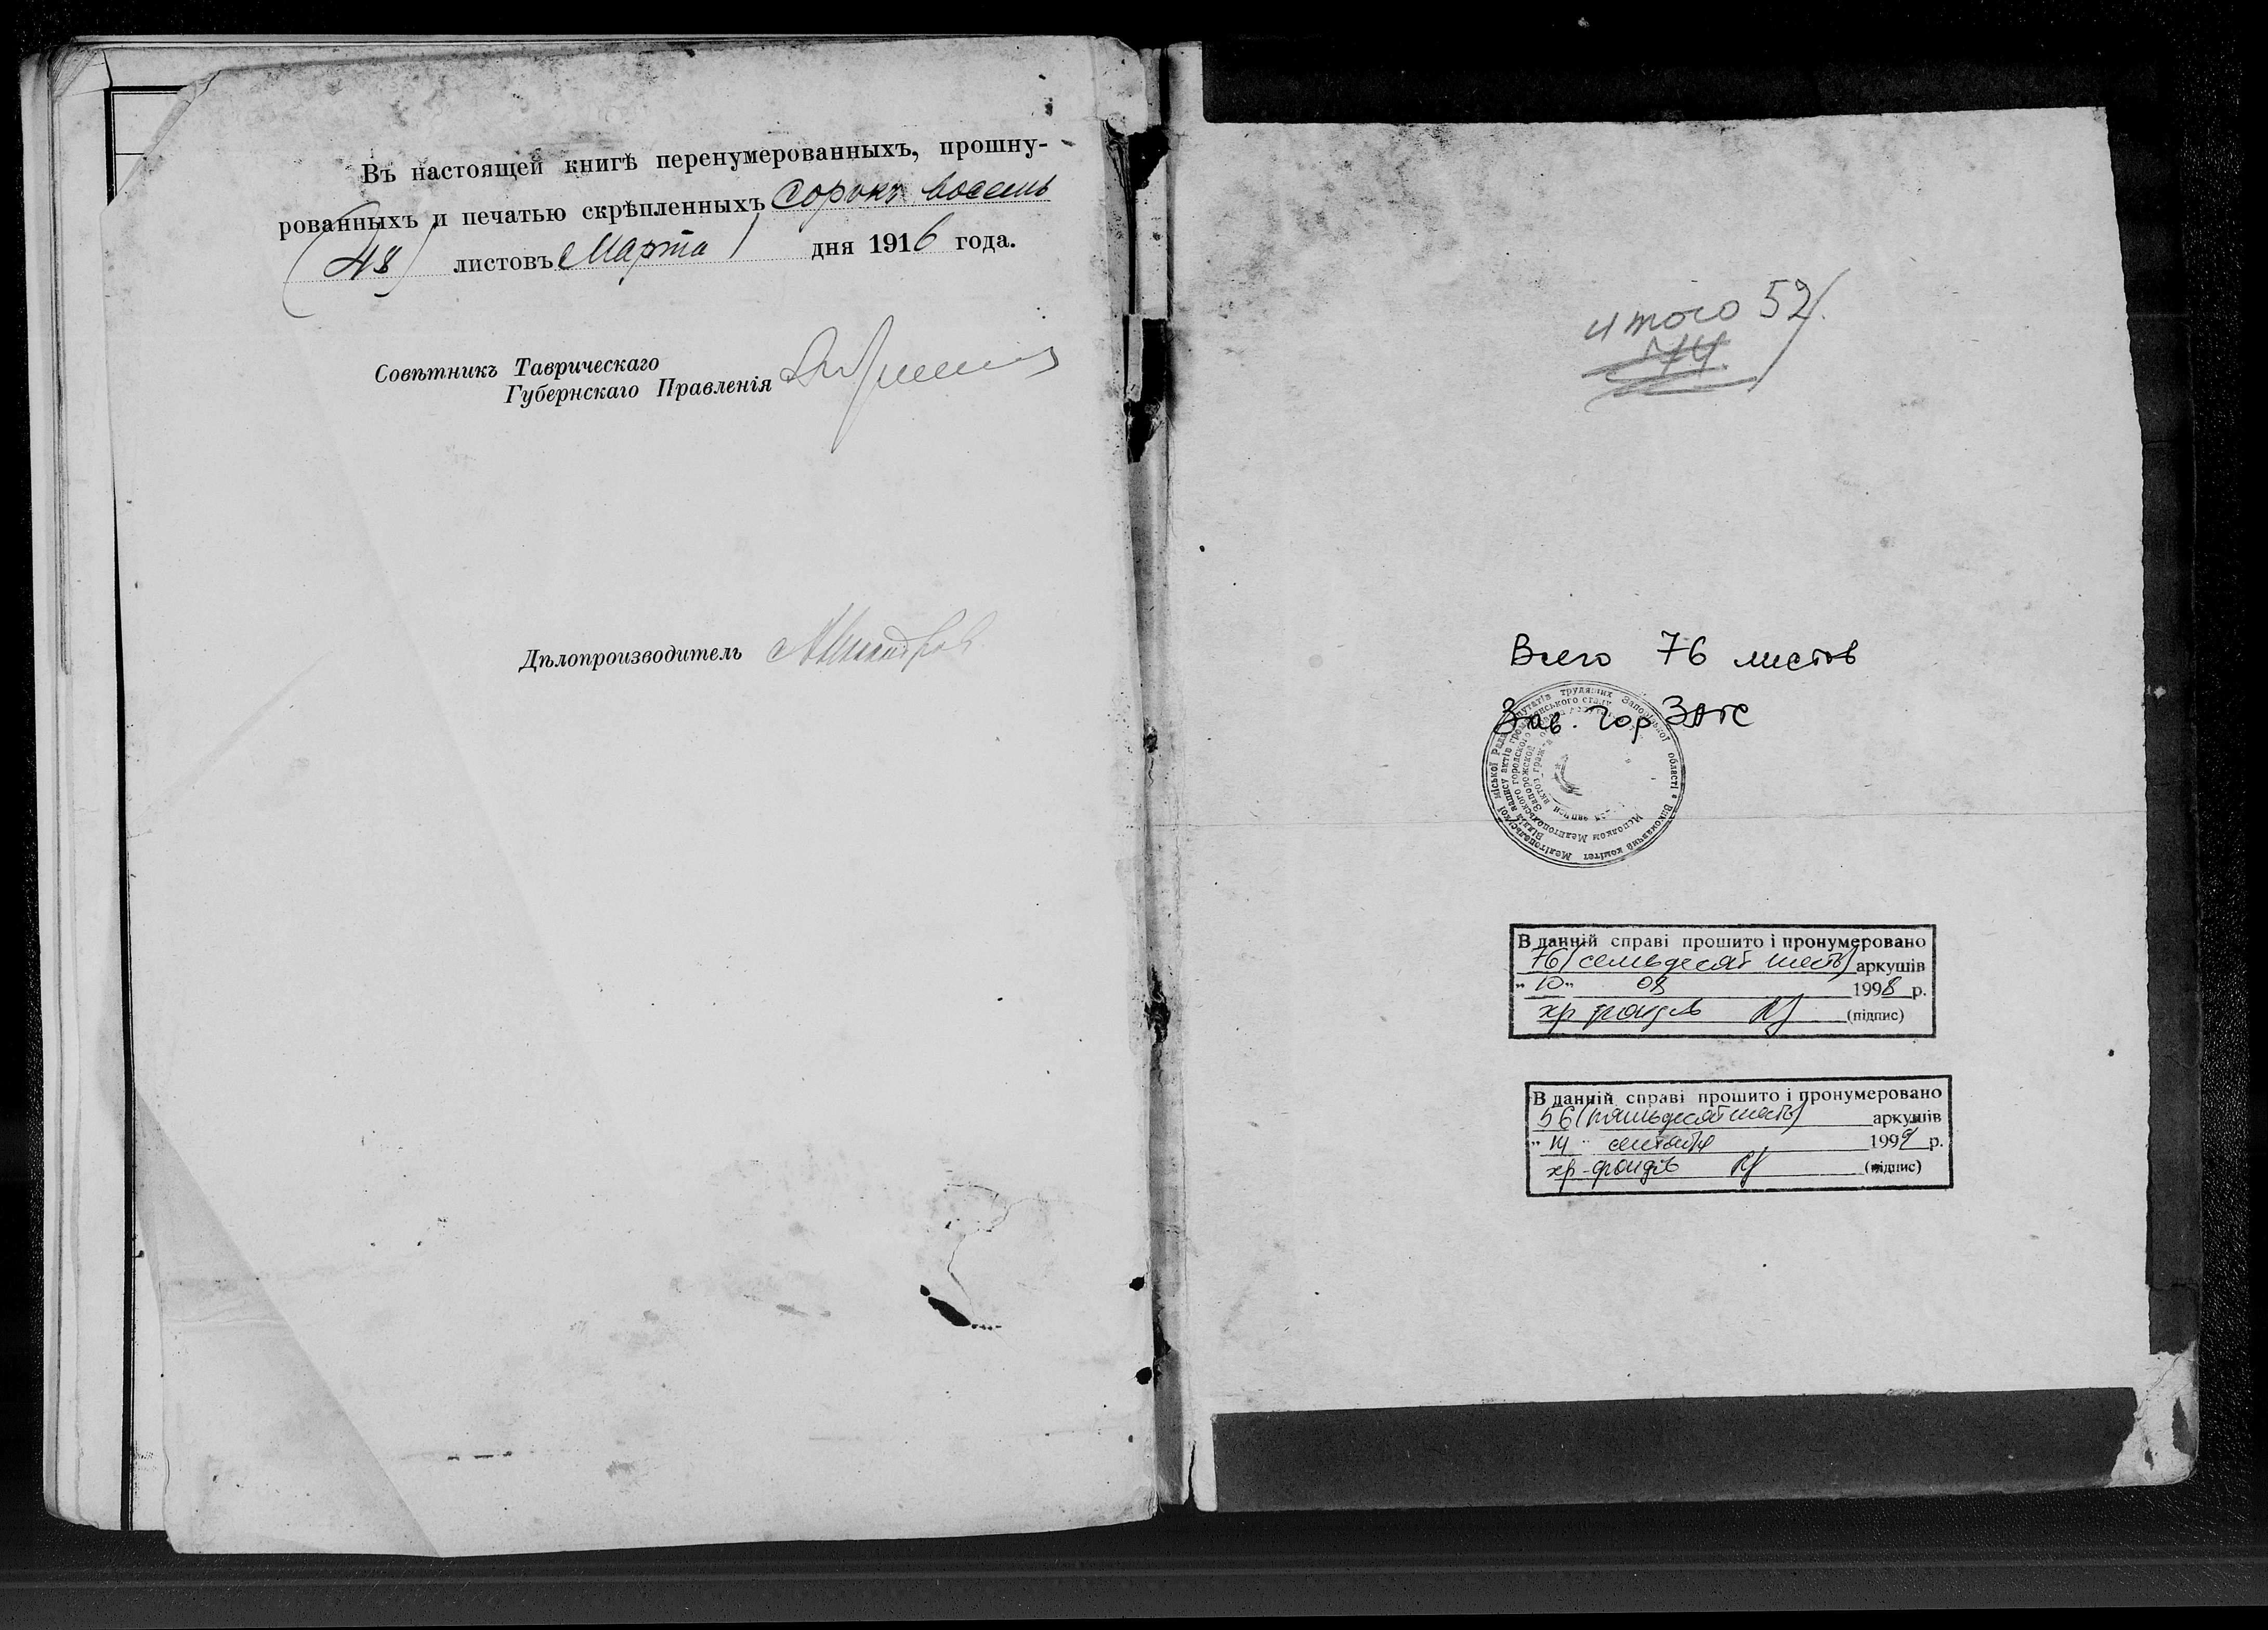 Въ настоящей книгѣ перенумерованныхъ, прошну-
рованныхъ и печатью скрѣпленныхъ Сорокъ восемь
(48) листовъ Марта 1 дня 1916 года.
Совѣтникъ Таврическаго
Губернскаго Правленія
Дѣлопроизводитель
итого 52
44
Всего 76 листов
Зав. Гор ЗАГС
В данній справі прошито і пронумеровано
76 (семьдесят шесть) аркушів
„ 10 „ 08 1998 р.
хр фондів (підпис)
В данній справі прошито і пронумеровано
56 (пятьдесят шесть) аркушів
„ 14 „ 1999 р.
хр-фондів (підпис)